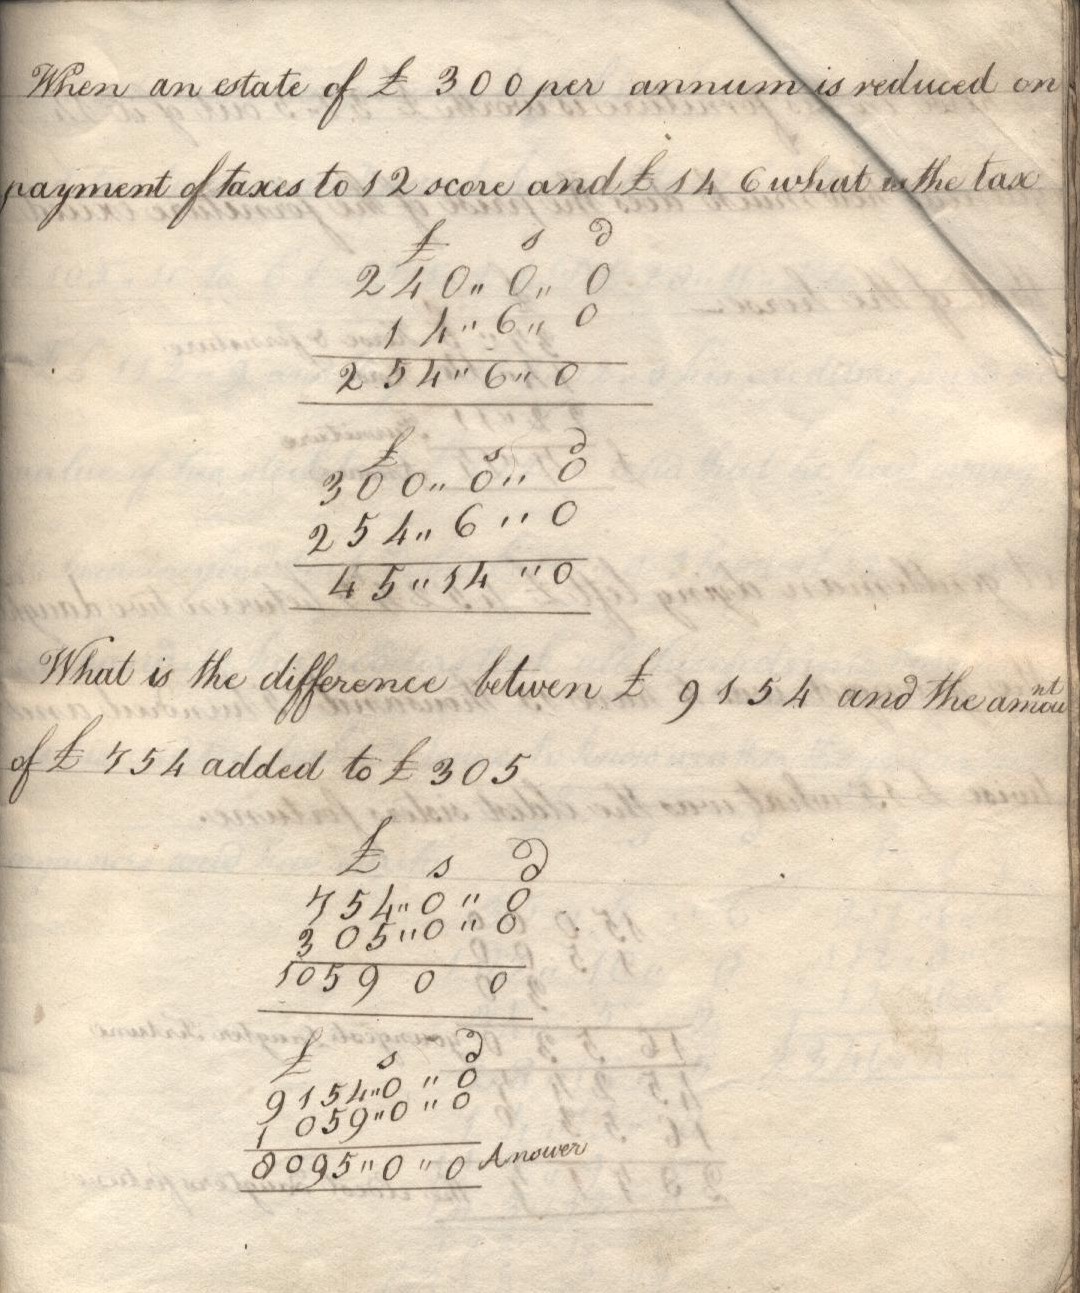 When an estate of £ 300 per annum is reduced on
payment of taxes to 12 score and £ 14 6 what is the tax
£ s d
240 " 0 " 0
14 " 6 " 0
254 " 6 " 0
£ s d
300 " 0 " 0
254 " 6 " 0
45 " 14 " 0
What is the difference betwen £ 9154 and the amount
of £ 754 added to £ 305
£ s d
754 " 0 " 0
305 " 0 " 0
1059 0 0
£ s d
9154 " 0 " 0
1059 " 0 " 0
8095 " 0 " 0 Answer